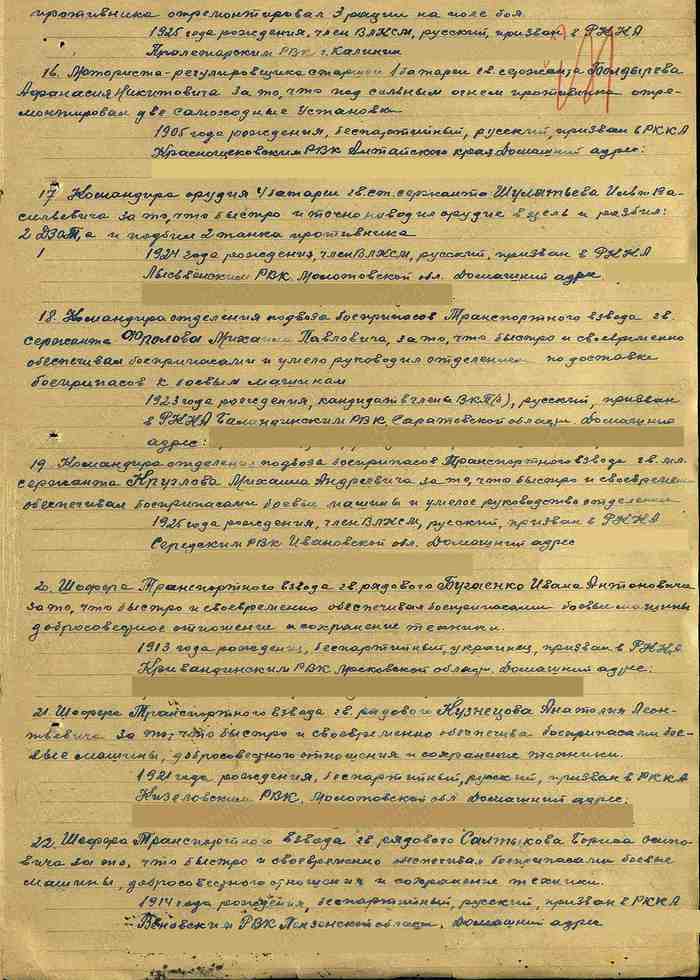 противника отремонтировал 3 рации на поле боя.
1925 года рождения, член ВЛКСМ, русский, призван в РККА
Пролетарским РВК г. Калинин
16. Моториста-регулировщика старшего 1 батареи гв. сержанта Болдырева
Афанасия Никитовича за то, что под сильным огнем противника отре-
монтировал две самоходные установки
1905 года рождения, беспартийный, русский, призван в РККА
Краснощековским РВК Алтайского края Домашний адрес:
17 Командира орудия 4 батареи гв. ст. сержанта Шулятьева Илью Ва-
сильевича за то, что быстро и точно наводил орудие в цель и разбил:
2 ДЗОТ,а и подбил 2 танка противника
1924 года рождения, член ВЛКСМ, русский, призван в РККА
Лысьвенским РВК. Молотовской обл. Домашний адре
18. Командира отделения подвоза боеприпасов Транспортного взвода гв.
сержанта Фролова Михаила Павловича, за то, что быстро и своевременно
обеспечивал боеприпасами и умело руководил отделением по доставке
боеприпасов к боевым машинам
1923 года рождения, кандидат в члены ВКП(б), русский, призван
в РККА Баландинским РВК. Саратовской области. Домашний
адрес:
19. Командира отделения подвоза боеприпасов Транспортного взвода гв. мл.
сержанта Круглова Михаила Андреевича за то, что быстро и своевременно
обеспечивал боеприпасами боевые машины и умелое руководство отделением
1925 года рождения, член ВЛКСМ, русский, призван в РККА
Середским РВК Ивановской обл. Домашний адрес
20. Шофера Транспортного взвода гв. рядового Бугаенко Ивана Антоновича
за то, что быстро и своевременно обеспечивал боеприпасами боевые машины
добросовестное отношение и сохранение техники.
1913 года рождения, беспартийный, украинец, призван в РККА
Кривандинским РВК Московской области. Домашний адрес:
21. Шофера Транспортного взвода гв. рядового Кузнецова Анатолия Леон-
тьевича за то, что быстро и своевременно обеспечивал боеприпасами бое-
вые машины, добросовестного отношения и сохранение техники.
1921 года рождения, беспартийный, русский, призван в РККА
Кизеловским РВК. Молотовской обл Домашний адрес:
22. Шофера Транспортного взвода гв рядового Салтыкова Бориса Осипо-
вича за то, что быстро и своевременно обеспечивал боеприпасами боевые
машины, добросовестного отношения и сохранение техники.
1914 года рождения, беспартийный, русский, призван в РККА
РВК Пензенской области. Домашний адрес